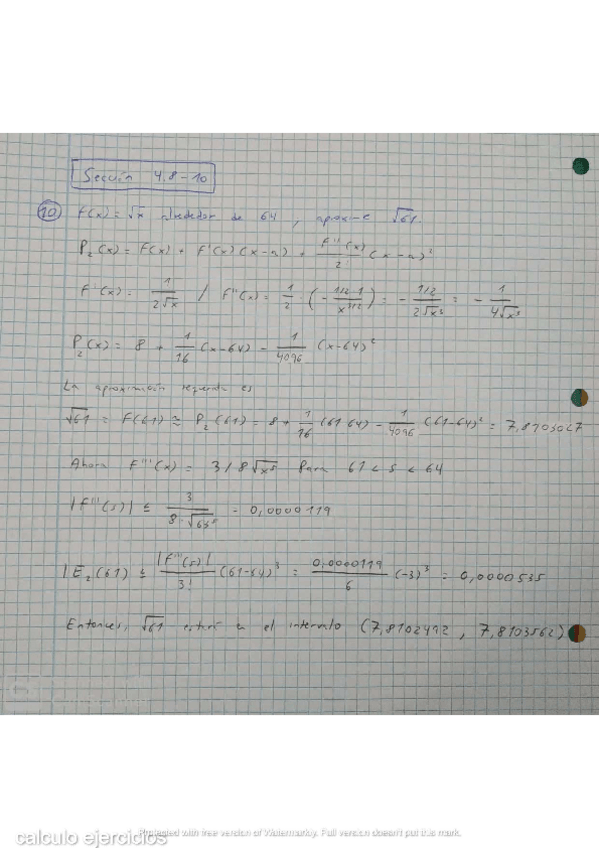 Sección 4.8-10
10 F(x) = √x alrededor de 64, aproxime √61.
P₂(x) = F(x) + F'(x)(x-a) + F''(x)/2! (x-a)²
F'(x) = 1/(2√x) / F''(x) = 1/2 · (- 1/2·1/x^(3/2)) = - (1/2)/(2√x³) = - 1/(4√x³)
P₂(x) = 8 + 1/16 (x-64) - 1/4096 (x-64)²
La aproximación requerida es
√61 = F(61) ≅ P₂(61) = 8 + 1/16 (61-64) - 1/4096 (61-64)² = 7,8103027
Ahora F'''(x) = 3/8√x⁵ Para 61 < s < 64
|F'''(s)| ≤ 3/(8·√63⁵) = 0,0000119
|E₂(61) ≤ |F'''(s)|/3! (61-64)³ = 0,0000119/6 (-3)³ = 0,0000535
Entonces, √61 en el intervalo (7,8102492, 7,8103562)
Protected with free version of Watermarkly. Full version doesn't put this mark.
calculo ejercicios